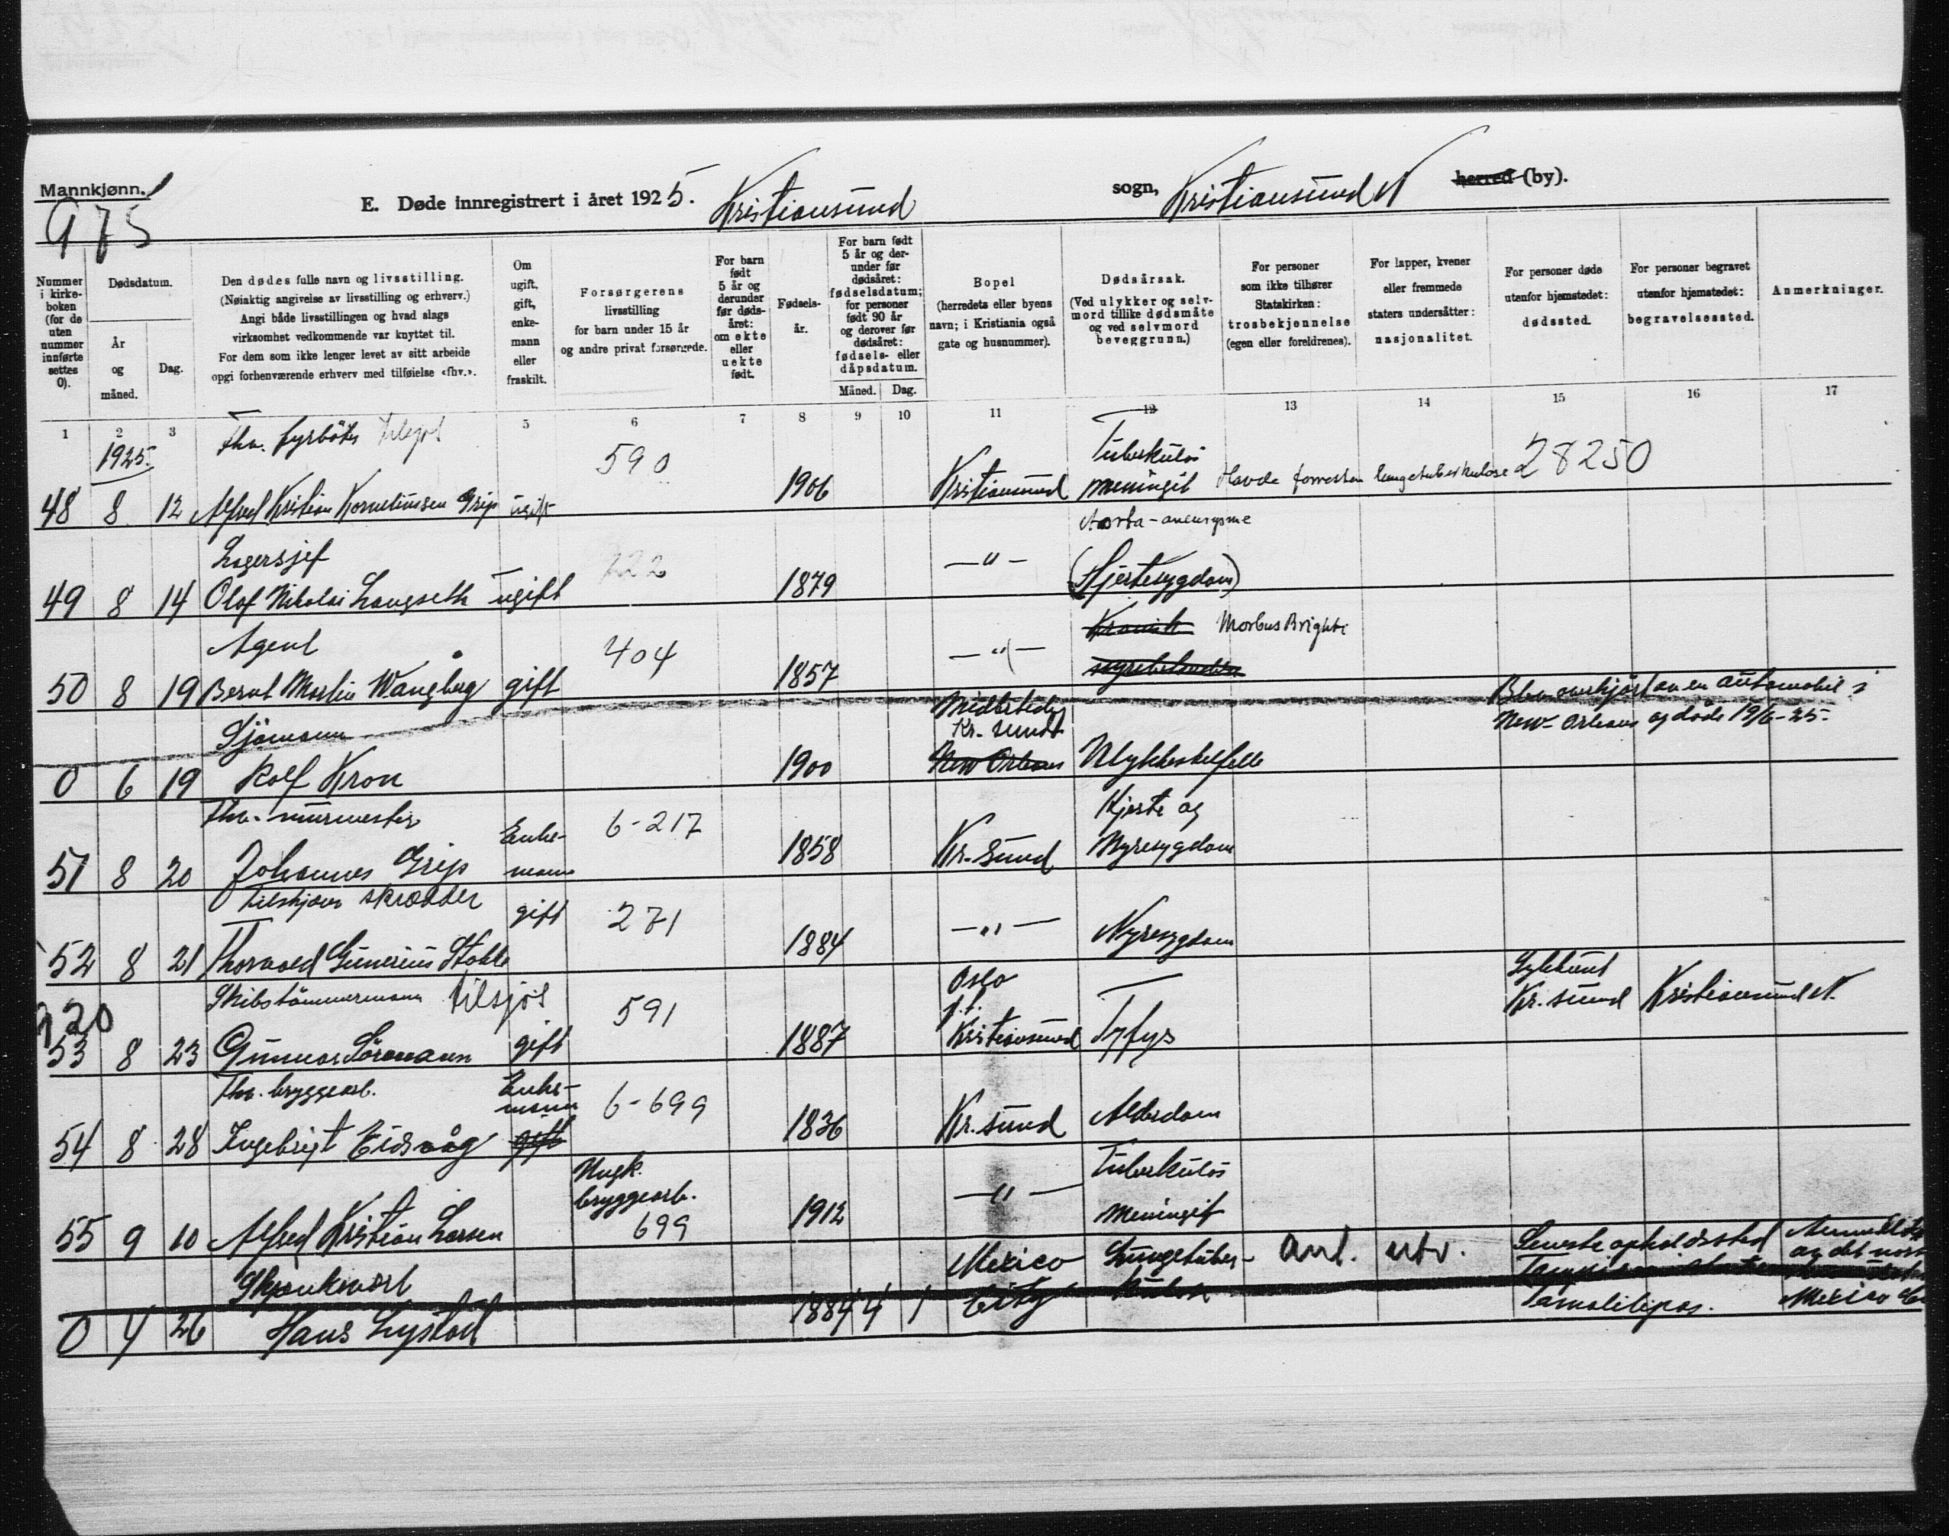 Mannkjønn.
975
E. Døde innregistrert i året 1925. Kristiansund sogn, Kristiansund N herred (by).
Nummer i kirkeboken (for de uten nummer innførte settes 0).
Dødsdatum.
År og måned.
Dag.
Den dødes fulle navn og livsstilling.
(Nøiaktig angivelse av livsstilling og erhverv.)
Angi både livsstillingen og hvad slags
virksomhet vedkommende var knyttet til.
For dem som ikke lenger levet av sitt arbeide
opgi forhenværende erhverv med tilføielse «fhv.».
Om ugift, gift, enkemann eller fraskilt.
Forsørgerens
livsstilling
for barn under 15 år
og andre privat forsørgede.
For barn født 5 år og derunder før dødsåret: om ekte eller uekte født.
Fødselsår.
For barn født 5 år og derunder før dødsåret: fødselsdatum; for personer født 90 år og derover før dødsåret: fødsels- eller dåpsdatum.
Måned. Dag.
Bopel
(herredets eller byens
navn; i Kristiania også
gate og husnummer).
Dødsårsak.
(Ved ulykker og selvmord tillike dødsmåte og ved selvmord beveggrunn.)
For personer
som ikke tilhører
Statskirken:
trosbekjennelse
(egen eller foreldrenes).
For lapper, kvener
eller fremmede
staters undersåtter:
nasjonalitet.
For personer døde
utenfor hjemstedet:
dødssted.
For personer begravet
utenfor hjemstedet:
begravelsessted.
Anmerkninger.
1 2 3 5 6 7 8 9 10 11 12 13 14 15 16 17
1925.
Fhv. fyrböter tilsjøs
590
Tuberkuløs
28250
48 8 12 Alfred Kristian Korneliussen Grip ugift 1906 Kristiansund meningit Havde forresten lungetuberkulose
Aorta-aneurysme
Lagersjef
222
49 8 14 Olaf Nikolai Langseth ugift 1879 —"— (Hjertesygdom)
Agent
404
Kronisk Morbus Brighti
50 8 19 Bernt Martin Wangberg gift 1857 —"—
Blev overkjørt av en automobil i
New-Orleans og døde 19/6-25.
Sjömann
Midlertidig
Kr. sund
0 6 19 Rolf Kron 1900 New Orleans Ulykkestilfelle
Fhv. murmester
6-217
Hjerte og
51 8 20 Johannes Grip Enkemann 1858 Kr. sund Nyresygdom
skrædder
271
52 8 21 Thorvald Gunerius gift 1884 —"— Nyresygdom
920
Skibstömmermann tilsjøs
591
Oslo
p.t.
Sykehuset
Kr. sund Kristiansund N.
53 8 23 Gunnar gift 1887 Kristiansund Tyfus
Fhv. bryggearb.
Enkemann
6-699
54 8 28 Ingebrigt Eidsvåg gift 1836 Kr. sund Alderdom
Ungk.
bryggearb.
699
Tuberkuløs
55 9 10 Alfred Kristian Larsen 1912 —"— meningit
Skjenkevert
Mexico
City
Lungetuberkulose
ant. utv.
Seneste opholdssted
Tamalilipas.
av det norske
Mexico
0 4 26 Hans Lystad 1884 4 1